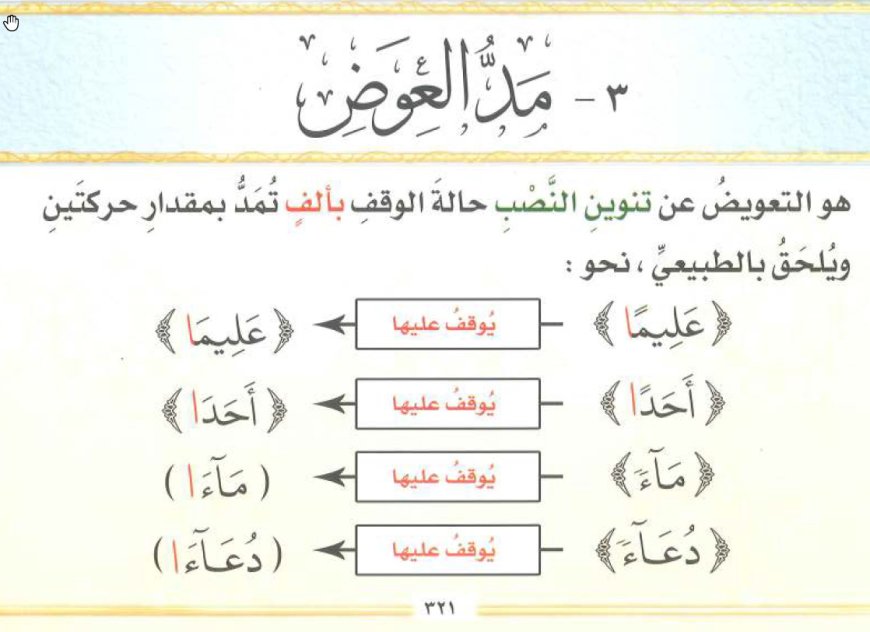 ٣ - مَدُّ العِوَضِ
هو التعويضُ عن تنوينِ النَّصْبِ حالةَ الوقفِ بألفٍ تُمَدُّ بمقدارِ حركتَينِ
ويُلحَقُ بالطبيعيِّ ، نحو :
﴿ عَلِيمًا ﴾ يُوقفُ عليها ﴿ عَلِيمَا ﴾
﴿ أَحَدًا ﴾ يُوقفُ عليها ﴿ أَحَدَا ﴾
﴿ مَآءً ﴾ يُوقفُ عليها ( مَآءَا )
﴿ دُعَآءً ﴾ يُوقفُ عليها ( دُعَآءَا )
٣٢١